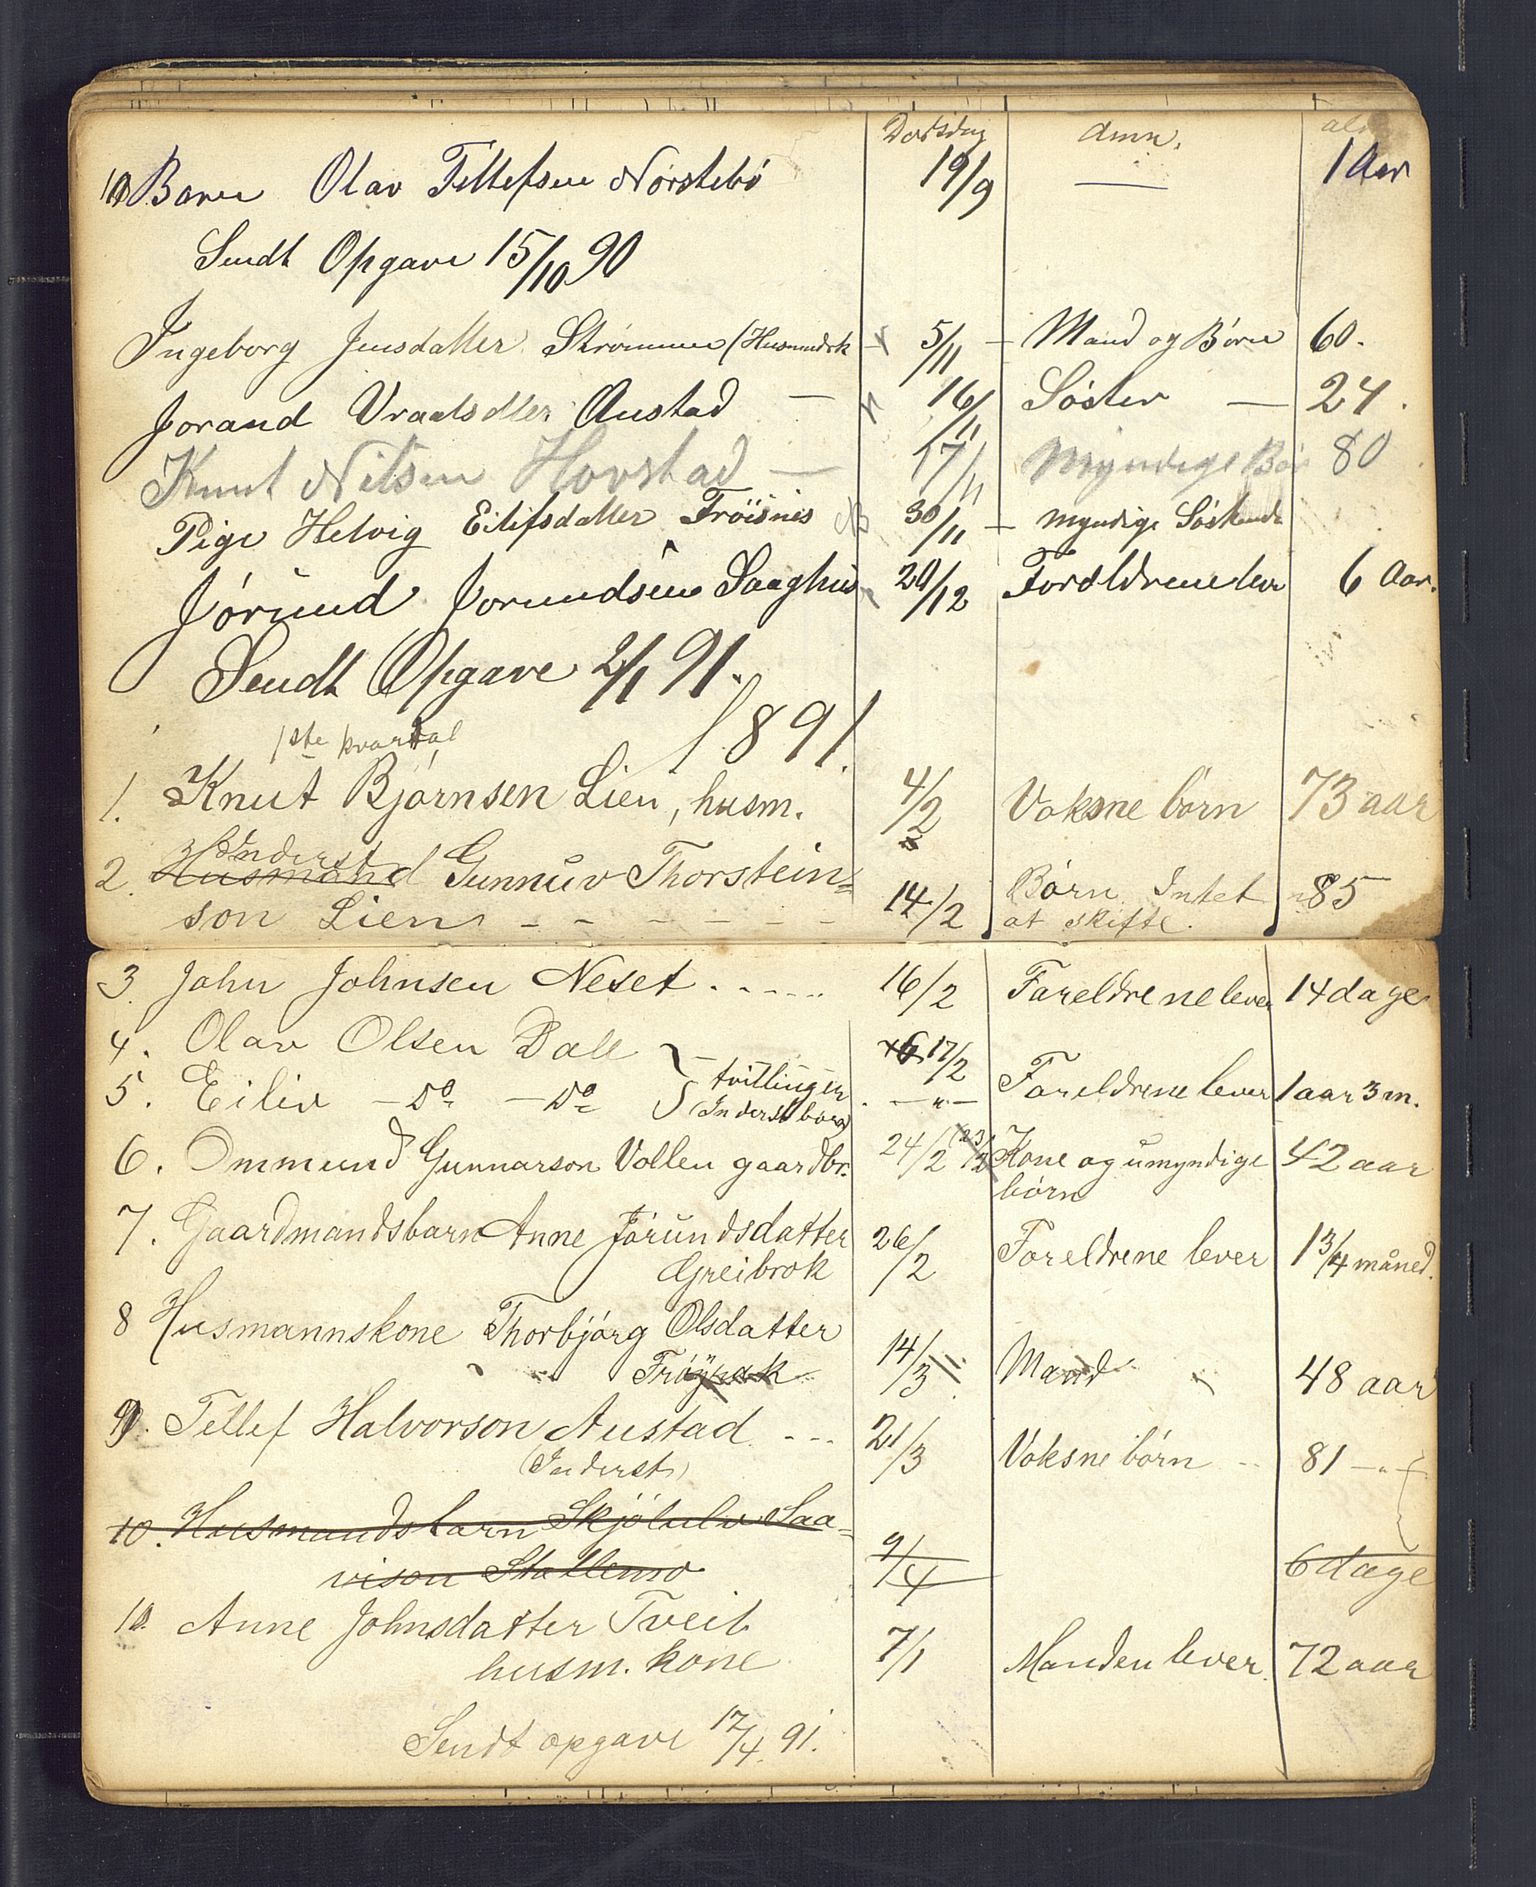 Dødsdag anm. al
10 Barn Olav Tellefsen Nørstebø 19/9 — 1 Aar
Sendt Opgave 15/10 90
Ingeborg Jensdatter Strømmen (Husmandsk 5/11 — Mand og Børn 60.
Jorand Vraalsdtter Austad — 16/11 Søster — 24.
Knut Nilsen Hovstad — 17/11 Myndige Bør 80
Pige Helvig Eilifsdatter Frøisnis 30/11 — Myndige Søskende
Jørund Jorundsen Saaghus 20/12 Forældrene lev 6 Aar.
Sendt Opgave 2/1 91.
1891.
1ste kvartal
1. Knut Bjørnsen Lien, husm. 4/2 Voksne børn 73 aar
Inderst
2. Husmand Gunnuv Thorstein=
son Lien - - - - - - 14/2 Børn. Intet 85
at skifte.
3. John Johnsen Neset . - - - - 16/2 Foreldrene lever 14 dage
4. Olav Olsen Dale } — tvillinger 17/2
5. Eiliv — Do — Do } (Inderst børn) — " — Foreldrene lever 1 aar 3 m.
6. Ommund Gunnarson Vollen gaardbr. 24/2 (23/2 Kone og umyndige 42 aar
børn
7. Gaardmandsbarn Anne Jørundsdatter 26/2 Foreldrene lever 1 3/4 måned.
Greibrok
8 Husmannskone Thorbjørg Olsdatter
Frøysnak 14/3 Mand 48 aar
9. Tellef Halvorson Austad - - - 21/3 Voksne børn - - 81 — " —
(Inderst)
10. Husmandsbarn Skjølulv Saa=
vison Stallemo 9/4 6 dage
10. Anne Johnsdatter Tveit
husm. kone 7/1 Manden lever. 72 aar
Sendt opgave 17/4. 91.